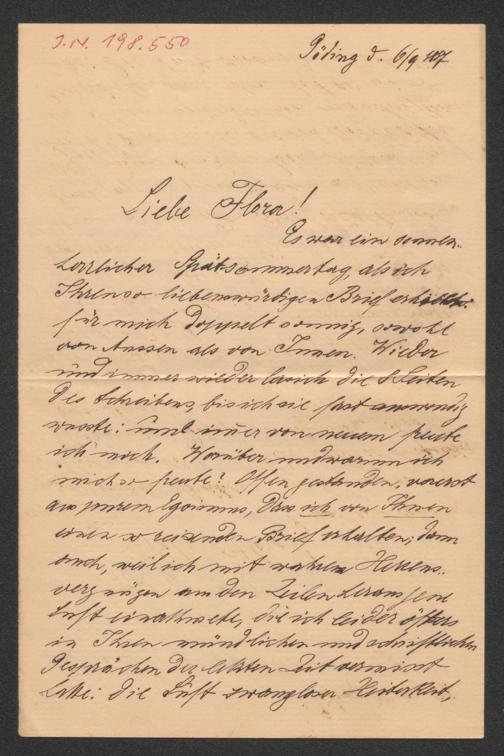 I.N. 198.550
Pöding d. 6/9 107
Liebe Flora!
Es war ein sonnen-
herrlicher Spätsommertag, als ich
Ihren so liebenswürdigen Brief erhielt:
für mich doppelt sonnig, sowohl
von Aussen als von Innen. Wieder
und immer wieder las ich die 8 Seiten
des Schreibens, bis ich sie fast auswendig
wusste: und immer von neuem freute
ich mich. Worüber und warum ich
mich so freute? Offen gestanden, vorerst
aus purem Egoismus, dass ich von Ihnen
einen so reizenden Brief erhalten; dann
auch, weil ich mit wahrem Herzens-
vergnügen aus den Zeilen heraus jene
Luft einathmete, die ich leider öfters
in Ihren mündlichen und schriftlichen
Gesprächen der letzten Zeit vermisst
hatte: die Luft zwangloser Heiterkeit,